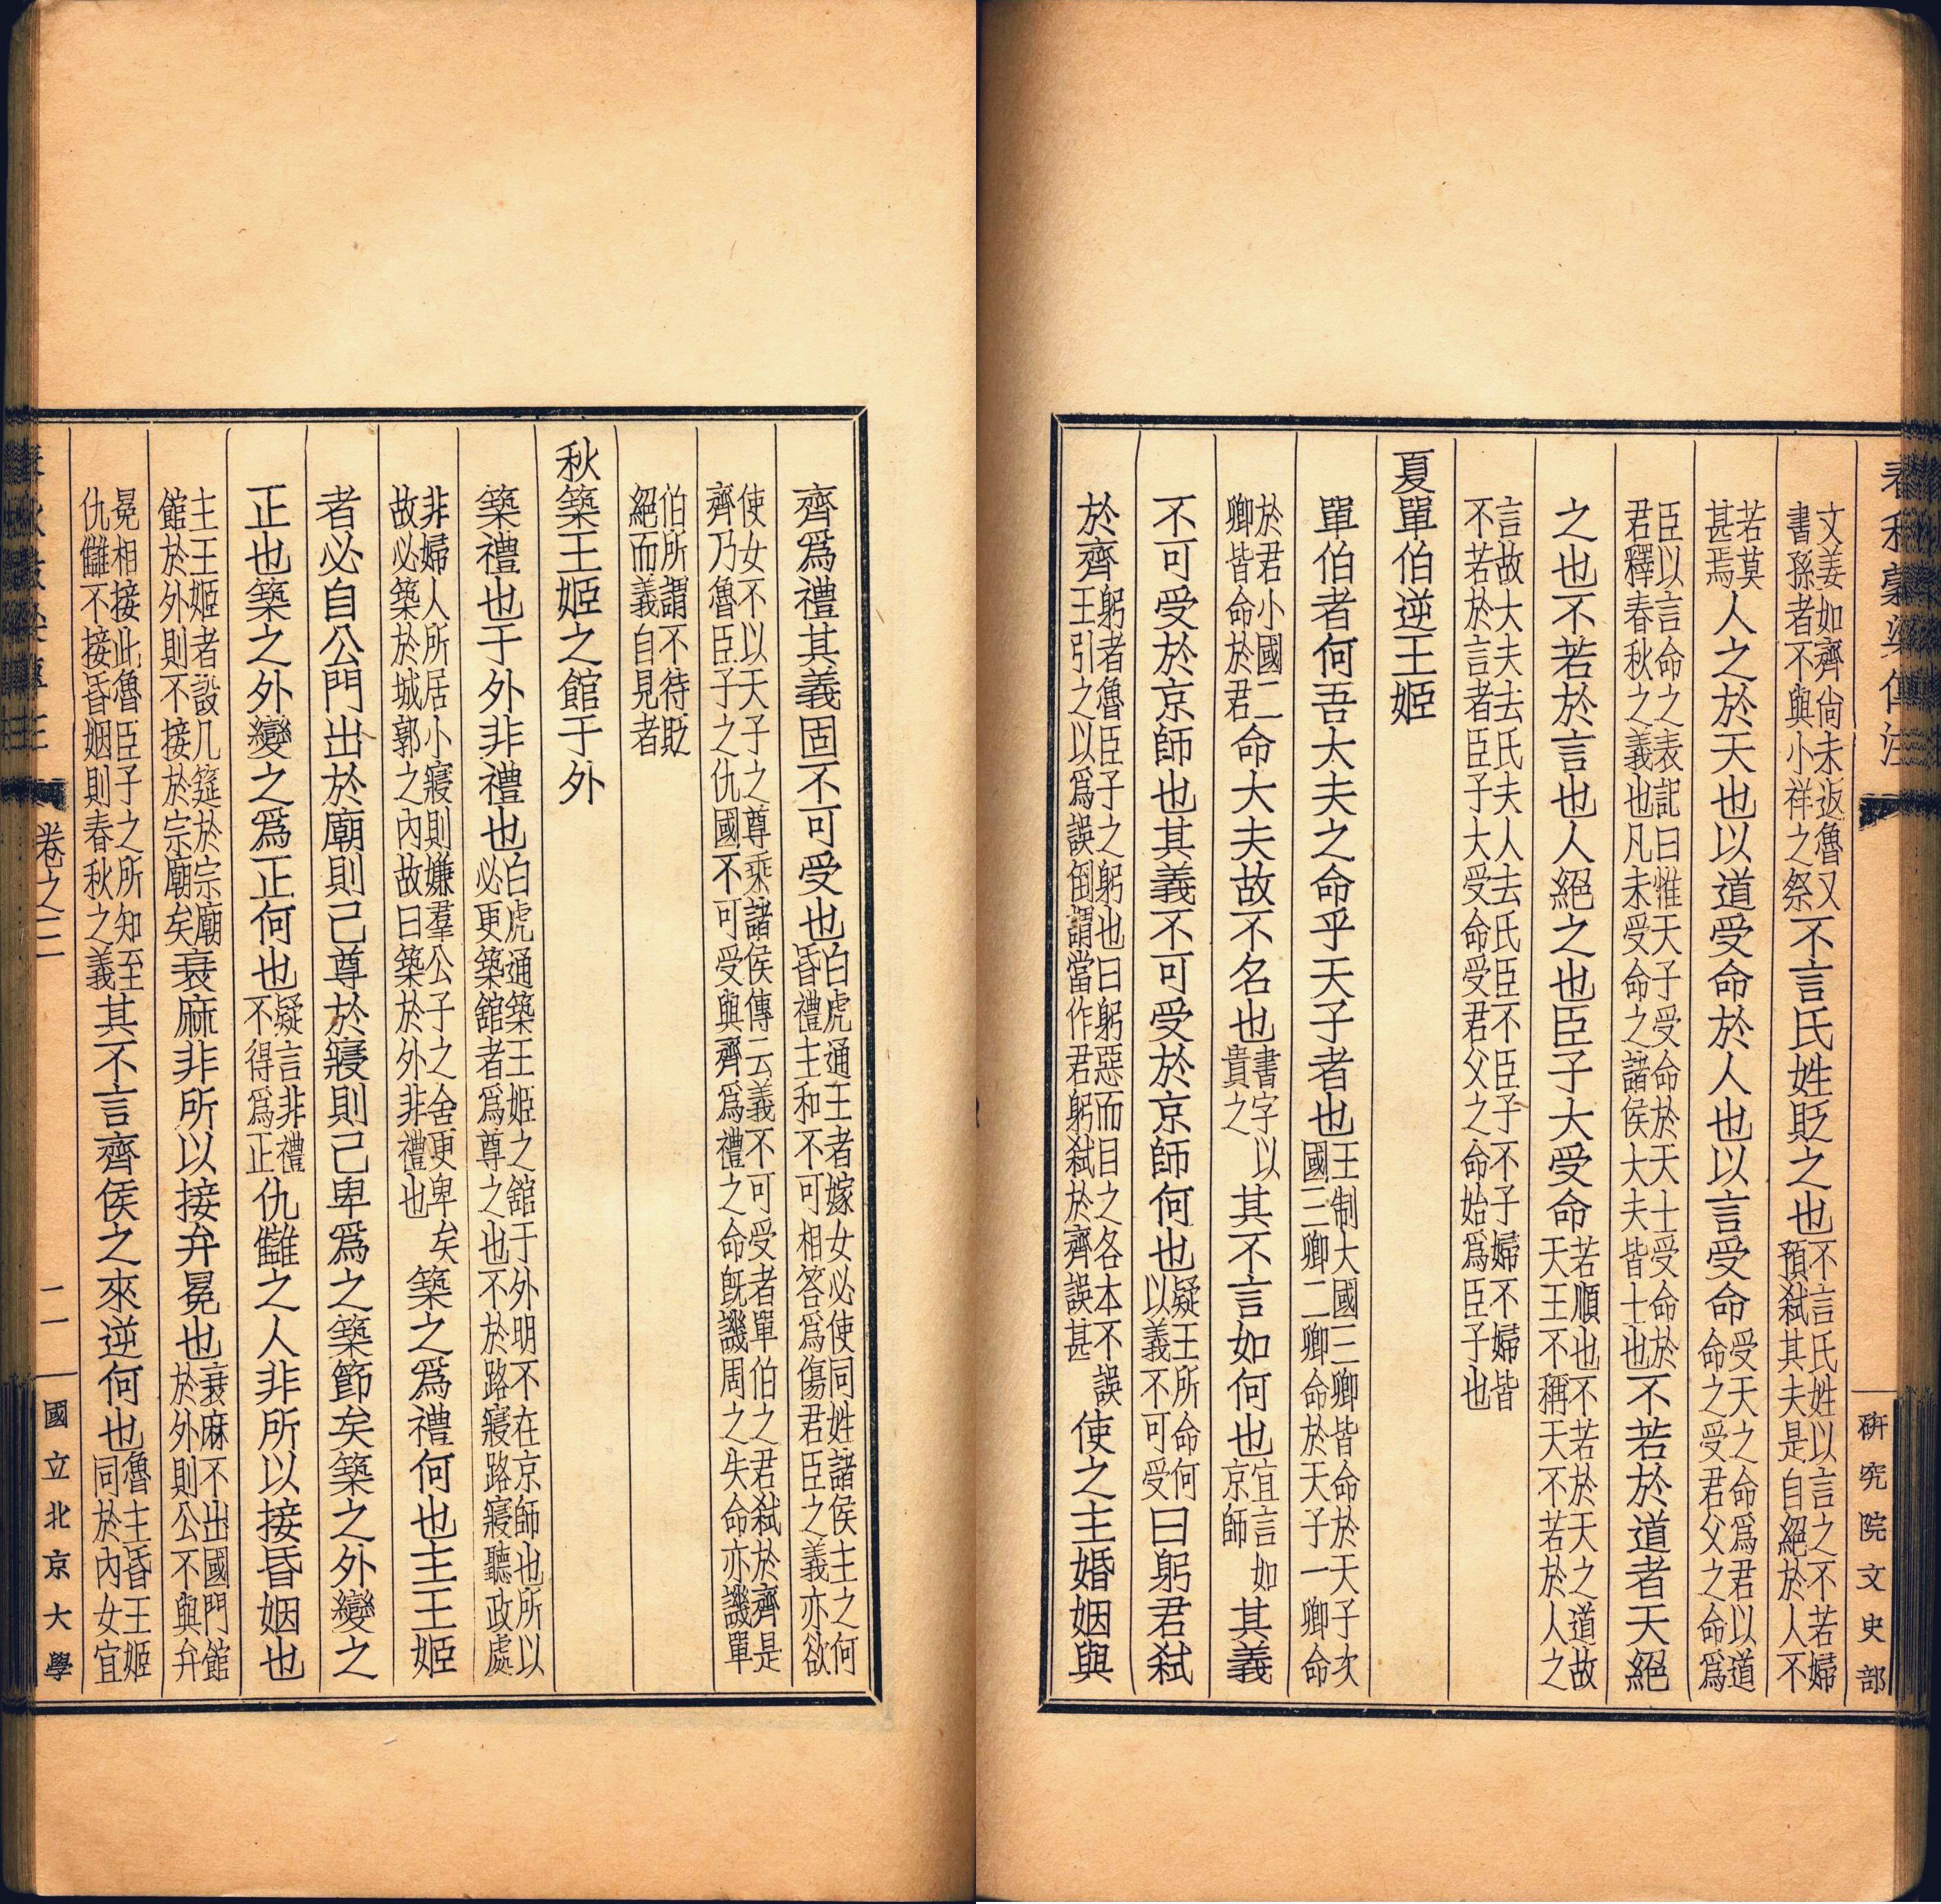 春秋穀梁傳注
研究院文史部
文姜如齊尚未返魯又書孫者不與小祥之祭不言氏姓貶之也不言氏姓以言之不若婦預弑其夫是自絕於人不
若莫甚焉人之於天也以道受命於人也以言受命受天之命爲君以道命之受君父之命爲
臣以言命之表記曰惟天子受命於天士受命於君釋春秋之義也凡未受命之諸侯大夫皆士也不若於道者天絕
之也不若於言也人絕之也臣子大受命若順也不若於天之道故天王不稱天不若於人之
言故大夫去氏夫人去氏臣不臣子不子婦不婦皆不若於言者臣子大受命受君父之命始爲臣子也
夏單伯逆王姬
單伯者何吾大夫之命乎天子者也王制大國三卿皆命於天子次國三卿二卿命於天子一卿命
於君小國二卿皆命於君命大夫故不名也書字以貴之其不言如何也宜言如京師其義
不可受於京師也其義不可受於京師何也疑王所命何以義不可受曰躬君弑
於齊躬者魯臣子之躬也曰躬惡而目之各本不誤王引之以爲誤倒謂當作君躬弑於齊誤甚使之主婚姻與
齊爲禮其義固不可受也白虎通王者嫁女必使同姓諸侯主之何昏禮主和不可相答爲傷君臣之義亦欲
使女不以天子之尊乘諸侯傳云義不可受者單伯之君弑於齊是齊乃魯臣子之仇國不可受與齊爲禮之命旣譏周之失命亦譏單
伯所謂不待貶絕而義自見者
秋築王姬之館于外
築禮也于外非禮也白虎通築王姬之舘于外明不在京師也所以必更築舘者爲尊之也不於路寢路寢聽政處
非婦人所居小寢則嫌羣公子之舍更卑矣故必築於城郭之內故曰築於外非禮也築之爲禮何也主王姬
者必自公門出於廟則己尊於寢則己卑爲之築節矣築之外變之
正也築之外變之爲正何也疑言非禮不得爲正仇讎之人非所以接昏姻也
主王姬者設几筵於宗廟館於外則不接於宗廟矣衰麻非所以接弁冕也衰麻不出國門館於外則公不與弁
冕相接此魯臣子之所知至仇讎不接昏姻則春秋之義其不言齊侯之來逆何也魯主昏王姬同於內女宜
卷之二
二
國立北京大學